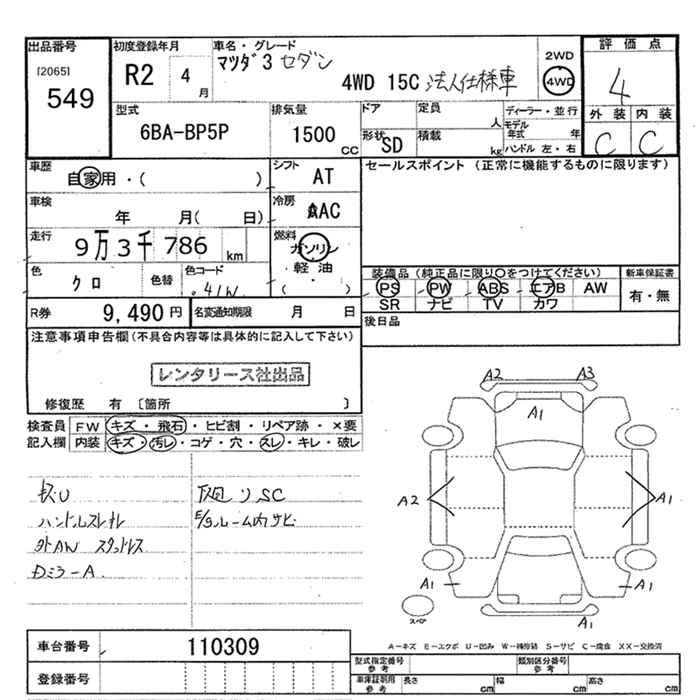 出品番号
[2065]
549
初度登録年月
R2 4月
車名・グレード
マツダ3 セダン
4WD 15C 法人仕様車
2WD
4WD
評価点
4
外装 内装
C C
型式
6BA-BP5P
排気量
1500 CC
ドア
定員
人
形状
SD
積載
kg
ディーラー・並行
モデル年式 年
ハンドル 左・右
車歴
自家用・( )
シフト
AT
車検
年 月( 日)
冷房
AAC
走行
9万3千786 km
燃料
ガソリン
軽油
( ・ )
色
クロ
色替
色コード
41W
セールスポイント (正常に機能するものに限ります)
装備品 (純正品に限り〇をつけてください)
新車保証書
PS PW ABS エアB AW
SR ナビ TV カワ
有・無
R券
9,490円
名変通知期限
月 日
後日品
注意事項申告欄(不具合内容等は具体的に記入して下さい)
レンタリース社出品
修復歴 有 〔箇所 〕
検査員記入欄
FW キズ・飛石・ヒビ割・リペア跡・×要
内装 キズ・汚レ・コゲ・穴・スレ・キレ・破レ
下廻リSC
ハンドルスレキレ
E/gルーム内サビ
外AW スタッドレス
Dミラ-A
A2 A3
A1
A2 A1
A1 A1
A1
スペア
A-キズ E-エクボ U-凹み W-補修跡 S-サビ C-腐食 XX-交換済
車台番号
110309
登録番号
型式指定番号 参考
類別区分番号 参考
車庫証明用 参考
長さ cm
幅 cm
高さ cm